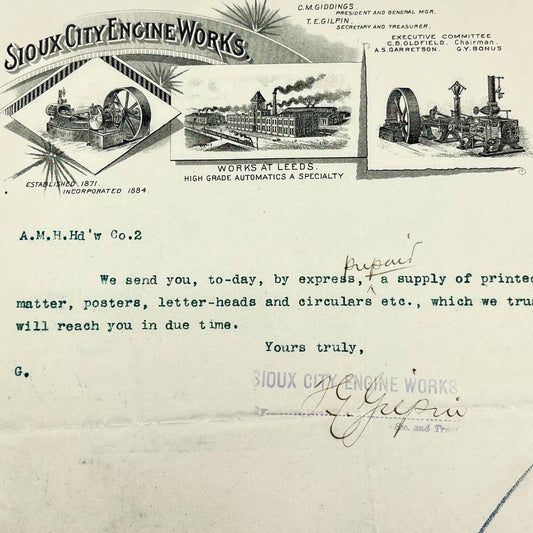 SIOUX CITY ENGINE WORKS.
C.M. GIDDINGS
PRESIDENT AND GENERAL MGR.
T. E. GILPIN,
SECRETARY AND TREASURER.
EXECUTIVE COMMITTEE
C. B. OLDFIELD, Chairman.
A. S. GARRETSON. G. Y. BONUS.
WORKS AT LEEDS.
HIGH GRADE AUTOMATICS A SPECIALTY.
ESTABLISHED 1871.
INCORPORATED 1884
A.M.H.Hd'w Co.2
prepaid
We send you, to-day, by express, a supply of printed
matter, posters, letter-heads and circulars etc., which we trus
will reach you in due time.
Yours truly,
G.
SIOUX CITY ENGINE WORKS
By T E Gilpin
Sec. and Trea